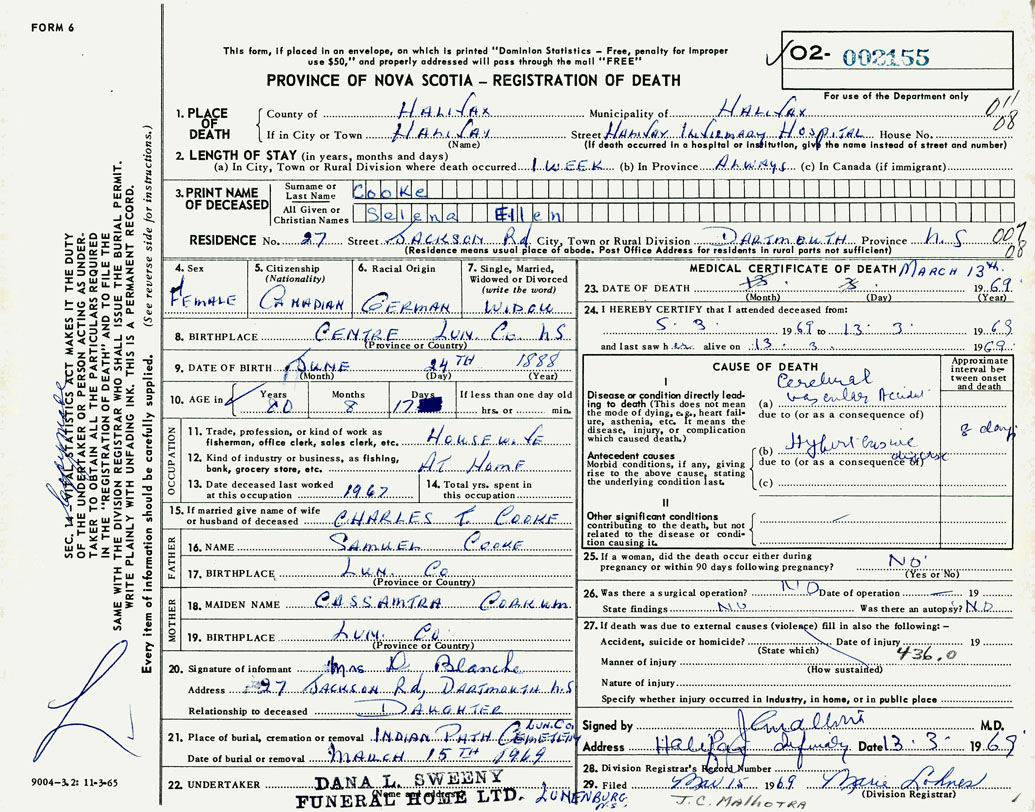 FORM 6
This form, if placed in an envelope, on which is printed "Dominion Statistics – Free, penalty for improper
use $50," and properly addressed will pass through the mail "FREE"
PROVINCE OF NOVA SCOTIA – REGISTRATION OF DEATH
02- 002155
For use of the Department only
1. PLACE OF DEATH
County of HALIFAX Municipality of HALIFAX 011
If in City or Town HALIFAX Street HALIFAX INFIRMARY HOSPITAL House No. 08
(Name) (If death occurred in a hospital or institution, give the name instead of street and number)
2. LENGTH OF STAY (in years, months and days)
(a) In City, Town or Rural Division where death occurred 1 WEEK (b) In Province ALWAYS (c) In Canada (if immigrant)
3. PRINT NAME OF DECEASED
Surname or Last Name Cooke
All Given or Christian Names Selena Ellen
RESIDENCE No. 27 Street JACKSON Rd City, Town or Rural Division DARTMOUTH Province N.S 007
(Residence means usual place of abode. Post Office Address for residents in rural parts not sufficient) 08
4. Sex FEMALE
5. Citizenship (Nationality) CANADIAN
6. Racial Origin GERMAN
7. Single, Married, Widowed or Divorced (write the word) WIDOW
8. BIRTHPLACE CENTRE LUN. CO. N.S
(Province or Country)
9. DATE OF BIRTH JUNE 24TH 1888
(Month) (Day) (Year)
10. AGE in Years 80 Months 8 Days 17 If less than one day old hrs. or min.
OCCUPATION
11. Trade, profession, or kind of work as fisherman, office clerk, sales clerk, etc. HOUSEWIFE
12. Kind of industry or business, as fishing, bank, grocery store, etc. AT HOME
13. Date deceased last worked at this occupation 1967
14. Total yrs. spent in this occupation
15. If married give name of wife or husband of deceased CHARLES T. COOKE
FATHER
16. NAME SAMUEL COOKE
17. BIRTHPLACE LUN. CO
(Province or Country)
MOTHER
18. MAIDEN NAME CASSAMTRA CORKUM
19. BIRTHPLACE LUN. CO.
(Province or Country)
20. Signature of informant Mrs D. Blanche
Address 27 JACKSON Rd, DARTMOUTH N.S
Relationship to deceased DAUGHTER
21. Place of burial, cremation or removal INDIAN PATH CEMETERY LUN. CO.
Date of burial or removal MARCH 15TH 1969
22. UNDERTAKER DANA L. SWEENY
(Name and address)
FUNERAL HOME LTD. LUNENBURG N.S.
MEDICAL CERTIFICATE OF DEATH MARCH 13th.
23. DATE OF DEATH 13. 3. 1969
(Month) (Day) (Year)
24. I HEREBY CERTIFY that I attended deceased from:
5. 3. 1969 to 13. 3. 1969
and last saw her alive on 13. 3. 1969
CAUSE OF DEATH
Approximate interval between onset and death
I
Disease or condition directly leading to death (This does not mean the mode of dying, e.g., heart failure, asthenia, etc. It means the disease, injury, or complication which caused death.)
(a) Cerebral vascular Accident
due to (or as a consequence of)
8 days
Antecedent causes
Morbid conditions, if any, giving rise to the above cause, stating the underlying condition last.
(b) Hypertensive disease
due to (or as a consequence of)
(c)
II
Other significant conditions
contributing to the death, but not related to the disease or condition causing it.
25. If a woman, did the death occur either during pregnancy or within 90 days following pregnancy? NO
(Yes or No)
26. Was there a surgical operation? NO Date of operation — 19
State findings NO Was there an autopsy? NO
27. If death was due to external causes (violence) fill in also the following:–
Accident, suicide or homicide? Date of injury 19
(State which) 436.0
Manner of injury
(How sustained)
Nature of injury
Specify whether injury occurred in industry, in home, or in public place
Signed by M.D.
Address Halifax Infirmary Date 13. 3. 1969
28. Division Registrar's Record Number
29. Filed Mar 15 1969 Marie Lohnes
(Division Registrar)
J. C. MALHOTRA
SEC. 14 – VITAL STATISTICS ACT MAKES IT THE DUTY
OF THE UNDERTAKER OR PERSON ACTING AS UNDER-
TAKER TO OBTAIN ALL THE PARTICULARS REQUIRED
IN THE "REGISTRATION OF DEATH" AND TO FILE THE
SAME WITH THE DIVISION REGISTRAR WHO SHALL ISSUE THE BURIAL PERMIT.
WRITE PLAINLY WITH UNFADING INK. THIS IS A PERMANENT RECORD.
Every item of information should be carefully supplied. (See reverse side for instructions.)
9004–3.2: 11-3-65